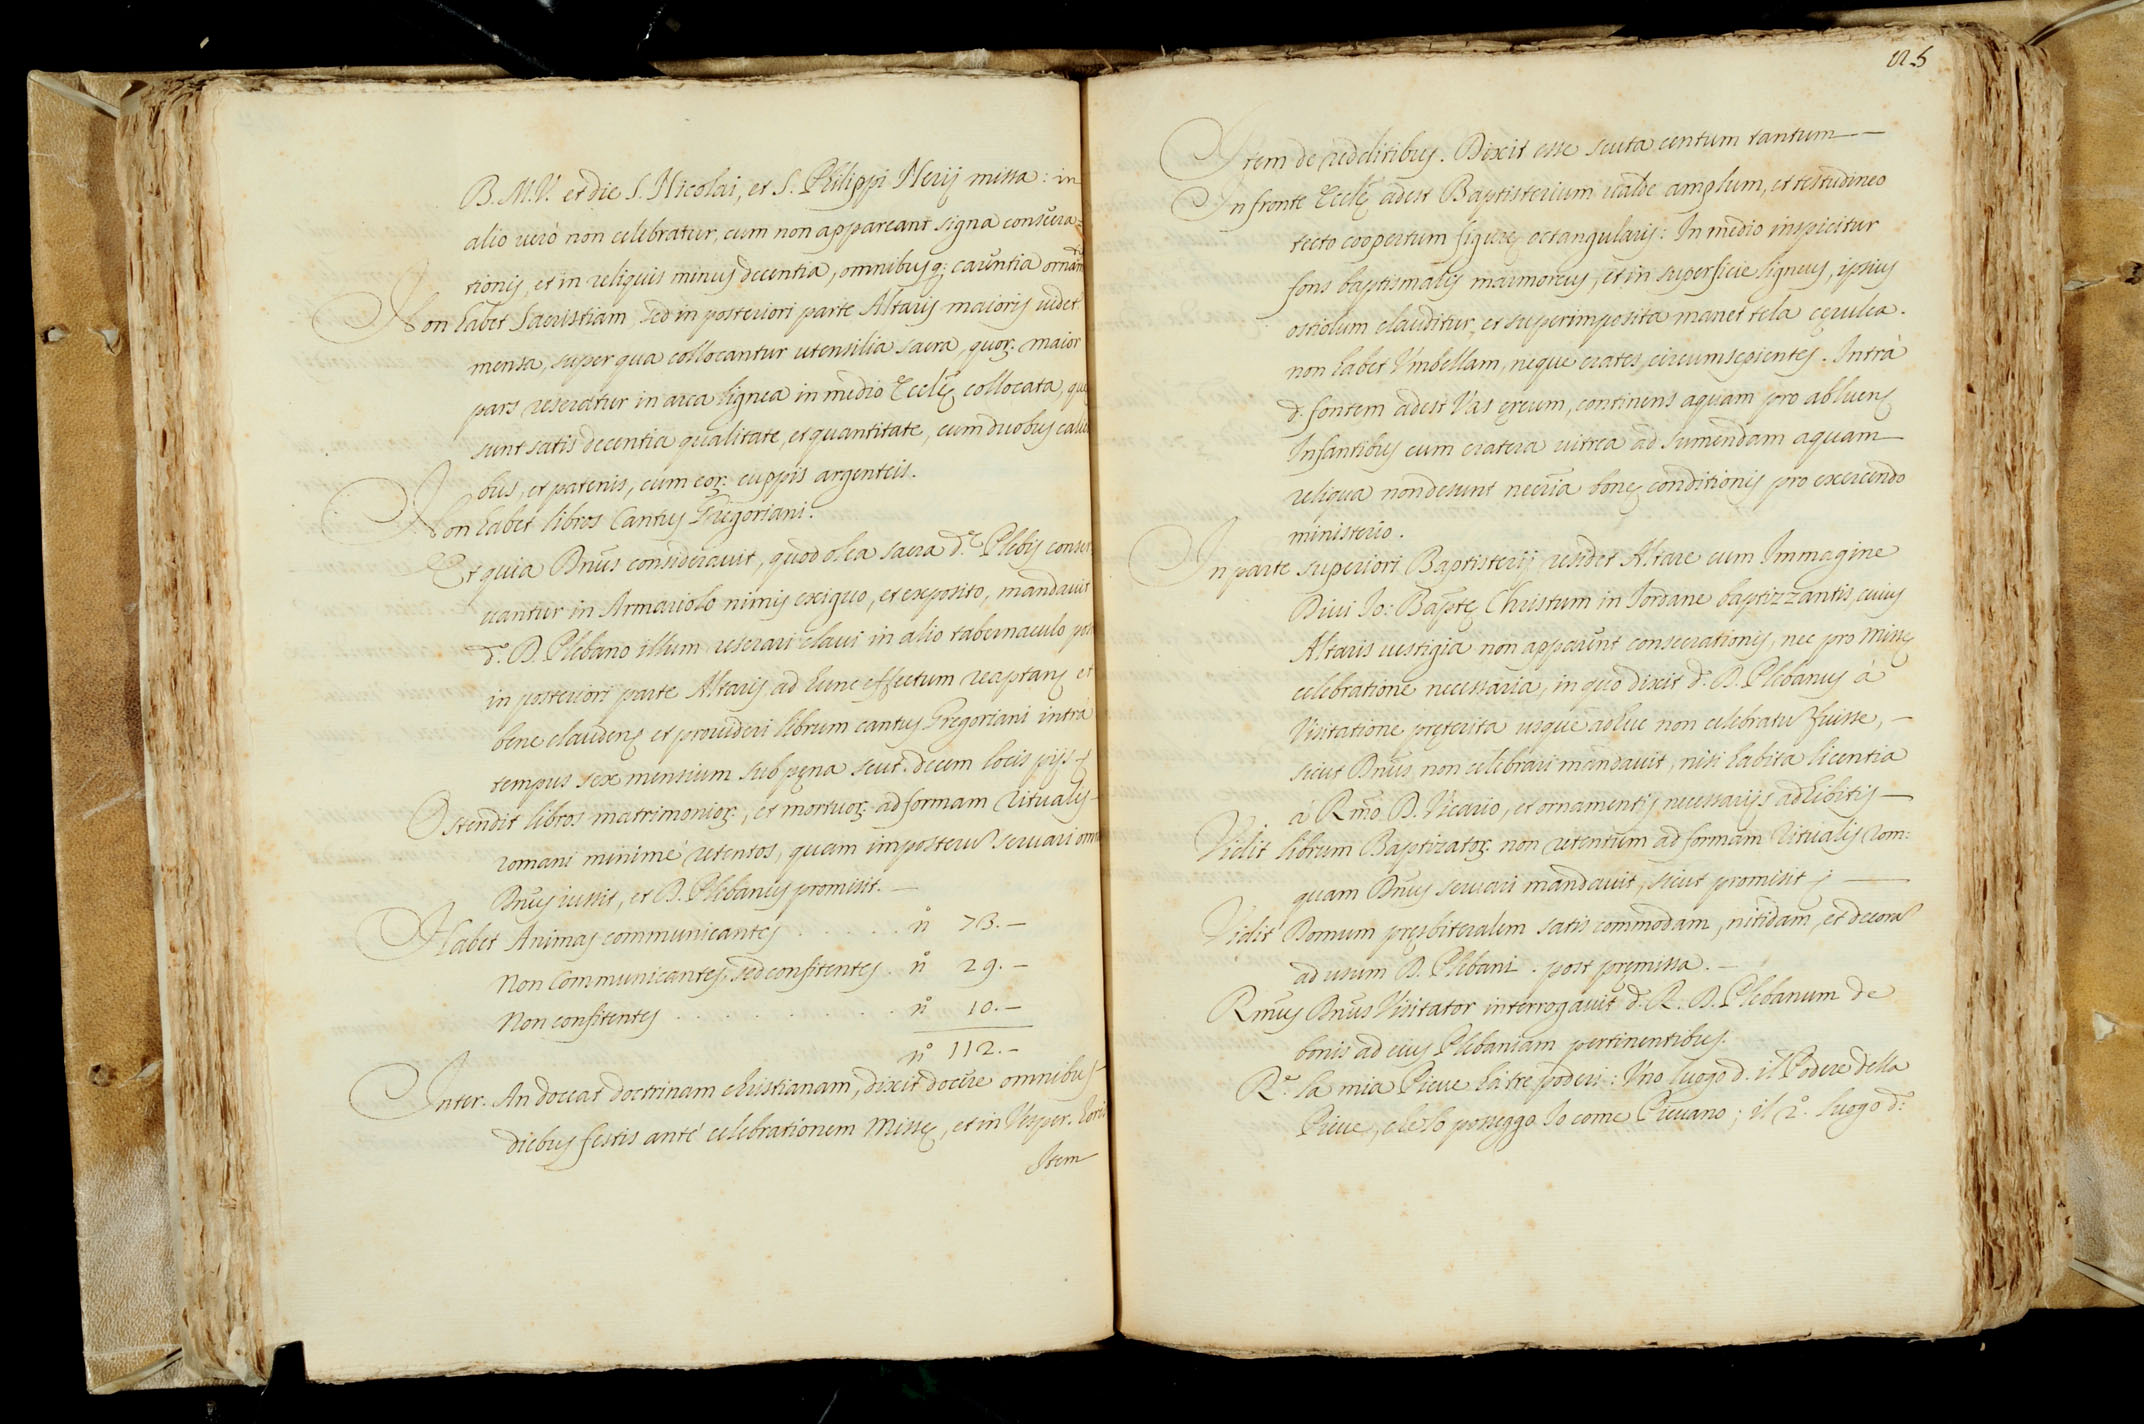 B. M. V. et die S. Nicolai, et S. Philippi Nerij missa: in
alio verò non celebratur, cum non appareant signa consecra=
tionis, et in reliquis minus decentia, omnibusq; carentia ornamtis
Non habet Sacristiam, sed in posteriori parte Altaris maioris videt.
mensa, super qua collocantur utensilia sacra, quor. maior
pars reseratur in arca lignea in medio Eccle collocata, que
sunt satis decentia qualitate, et quantitate, cum duobus calici
bus, et patenis, cum eor. cuppis argenteis.
Non habet libros Cantus Gregoriani.
Et quia Dnus consideravit, quod olea sacra de Plebis conser
vantur in Armariolo nimis exiguo, et exposito, mandavit
do. D. Plebano illum reserari clavi in alio tabernaculo
in posteriori parte Altaris ad hunc effectum reaptand et
bene claudend et provideri librum cantus Gregoriani intrà
tempus sex mensium sub pena scut. decem locis pijs
Ostendit libros matrimonior., et mortuor. ad formam Ritualis
romani minimè retentos, quam imposteru servari
Dnus iussit, et D. Plebanus promisit. —
Habet Animas communicantes . . . . . no 73.—
Non Communicantes, sed confitentes . no 29.—
Non confitentes . . . . . . . . . no 10.—
no 112.—
Inter. An doceat doctrinam christianam, dixit docere omnibus
diebus festis antè celebrationem Misse, et in Vesper.
Item
125
Item de redditibus. Dixit esse scuta centum tantum —
In fronte Eccle adest Baptisterium valde amplum, et testudineo
tecto coopertum figure octangularis: In medio inspicitur
fons baptismalis marmoreus, et in superficie ligneus, ipsius
ostiolum clauditur, et superimposita manet tela cerulea.
non habet Umbellam, neque crates circumsepientes. Intrà
d. fontem adest Vas ereum, continens aquam pro abluend
Infantibus cum cratera vitrea ad sumendam aquam
reliqua non desunt necria bone conditionis pro exercendo
ministerio.
In parte superiori Baptisterij residet Altare cum Immagine
Divi Io: Bapte Christum in Iordane baptizzantis, cuius
Altaris vestigia non apparent consecrationis, nec pro Misse
celebratione necessaria, in quo dixit d. D. Plebanus à
Visitatione preterita usque adhuc non celebratu fuisse, —
sicut Dnus non celebrari mandavit, nisi habita licentia
à Rmo D. Vicario, et ornamentis necessarijs adhibitis —
Vidit librum Baptizator. non retentum ad formam Ritualis rom:
quam Dnus servari mandavit, sicut promisit —
Vidit Domum presbiteralem satis commodam, nitidam, et decora
ad usum D. Plebani. post premissa. —
Rmus Dnus Visitator interrogavit d. R. D. Plebanum de
bonis ad eius Plebaniam pertinentibus.
Re. la mia Pieve hà tre poderi: Uno luogo d. il Podere della
Pieve, che lo posseggo Io come Pievano; il 2o. luogo do: